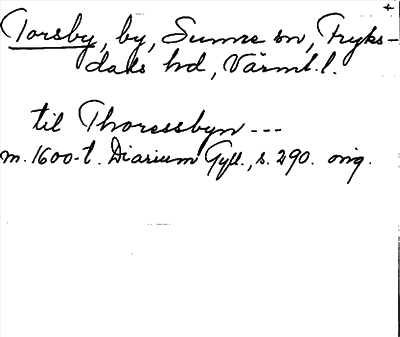 Torsby, by, Sunne sn, Fryks-
dals hd, Värml.l.
til Thoressbyn ---
m. 1600-t. Diarium Gyll., s. 290. orig.